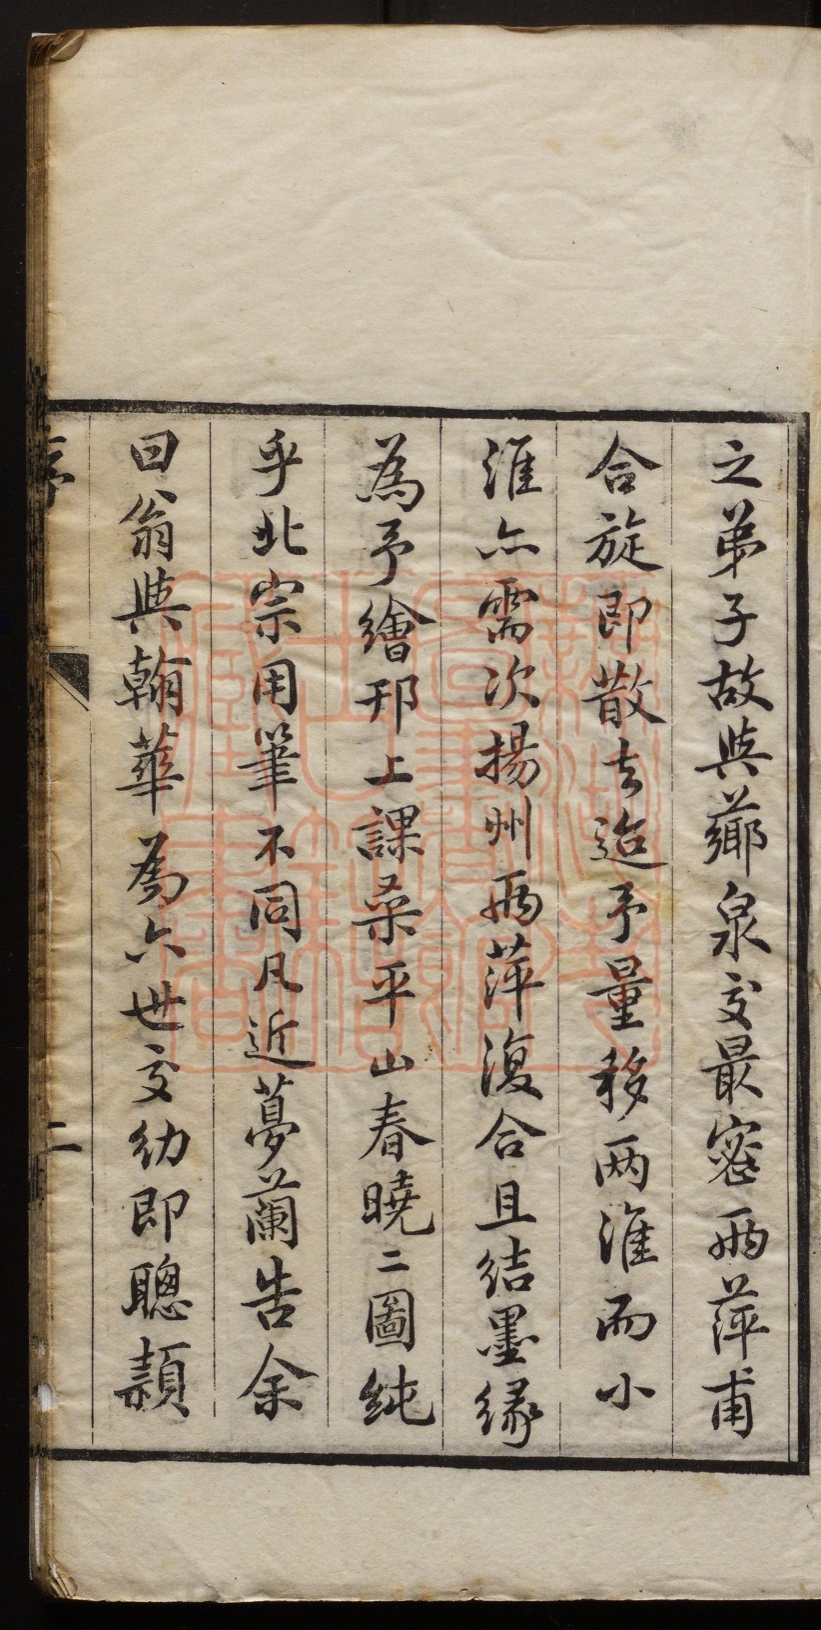 之弟子故與薌泉交最密兩萍甫
合旋即散去迨予量移两淮而小
淮亦需次揚州兩萍復合且結墨緣
為予繪邗上課桑平山春曉二圖純
乎北宗用筆不同凡近夢蘭告余
曰翁與翰華為六世交幼即聰頴
序
二